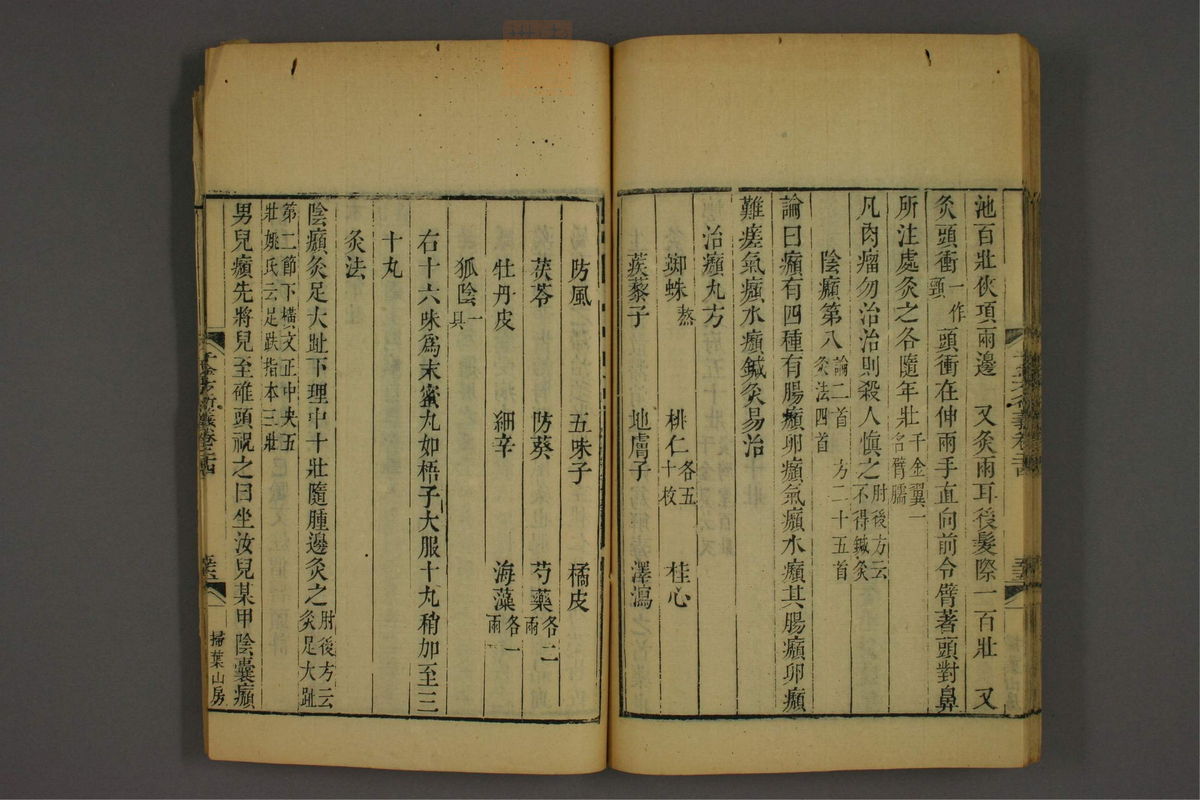 池百壯俠項兩邊　又灸兩耳後髮際一百壯　又
灸頭衝一作頸頭衝在伸兩手直向前令臂著頭對鼻
所注處灸之各隨年壯千金翼一名臂臑
凡肉瘤勿治治則殺人慎之肘後方云不得鍼灸
陰㿗第八論二首　方二十五首　灸法四首
論曰㿗有四種有腸㿗卵㿗氣㿗水㿗其腸㿗卵㿗
難瘥氣㿗水㿗鍼灸易治
治㿗丸方
蜘蛛熬　桃仁各五十枚　桂心
蒺藜子　地膚子　澤瀉
防風　五味子　橘皮
茯苓　防葵　芍藥各二兩
牡丹皮　細辛　海藻各一兩
狐陰一具
右十六味爲末蜜丸如梧子大服十丸稍加至三
十丸
灸法
陰㿗灸足大趾下理中十壯隨腫邊灸之肘後方云灸足大趾
第二節下橫文正中央五壯姚氏云足趺指本三壯
男兒㿗先將兒至碓頭祝之曰坐汝兒某甲陰囊㿗
千金方衍義卷二十四
掃葉山房